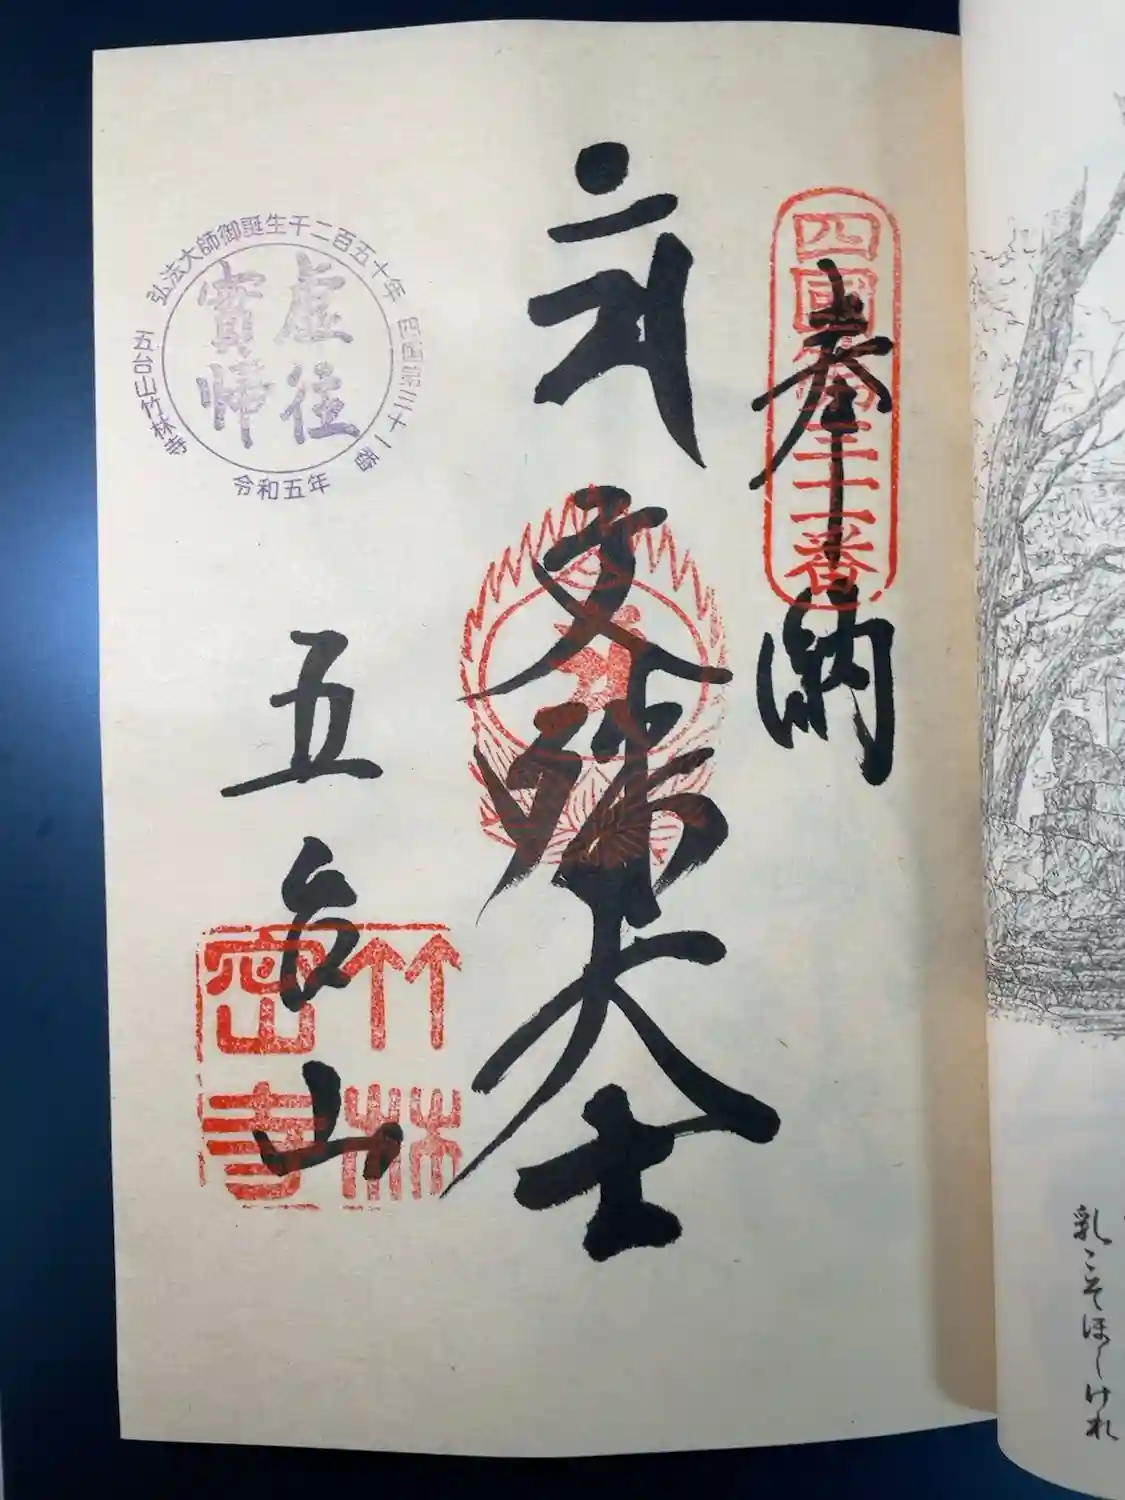 四國第三十一番
奉納
文殊大士
五台山
竹林
密寺
弘法大師御誕生千二百五十年
四国第三十一番
五台山竹林寺
令和五年
虚往
實帰
乳こそほしけれ